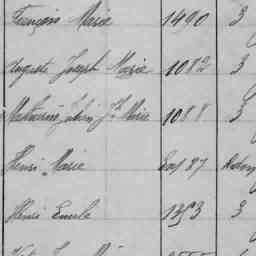 François Marie 1490 3
Auguste Joseph Marie 1082 3
Mathurin Julien Jh Marie 1088 3
Henri Marie 87
Henri Emile 1353 3